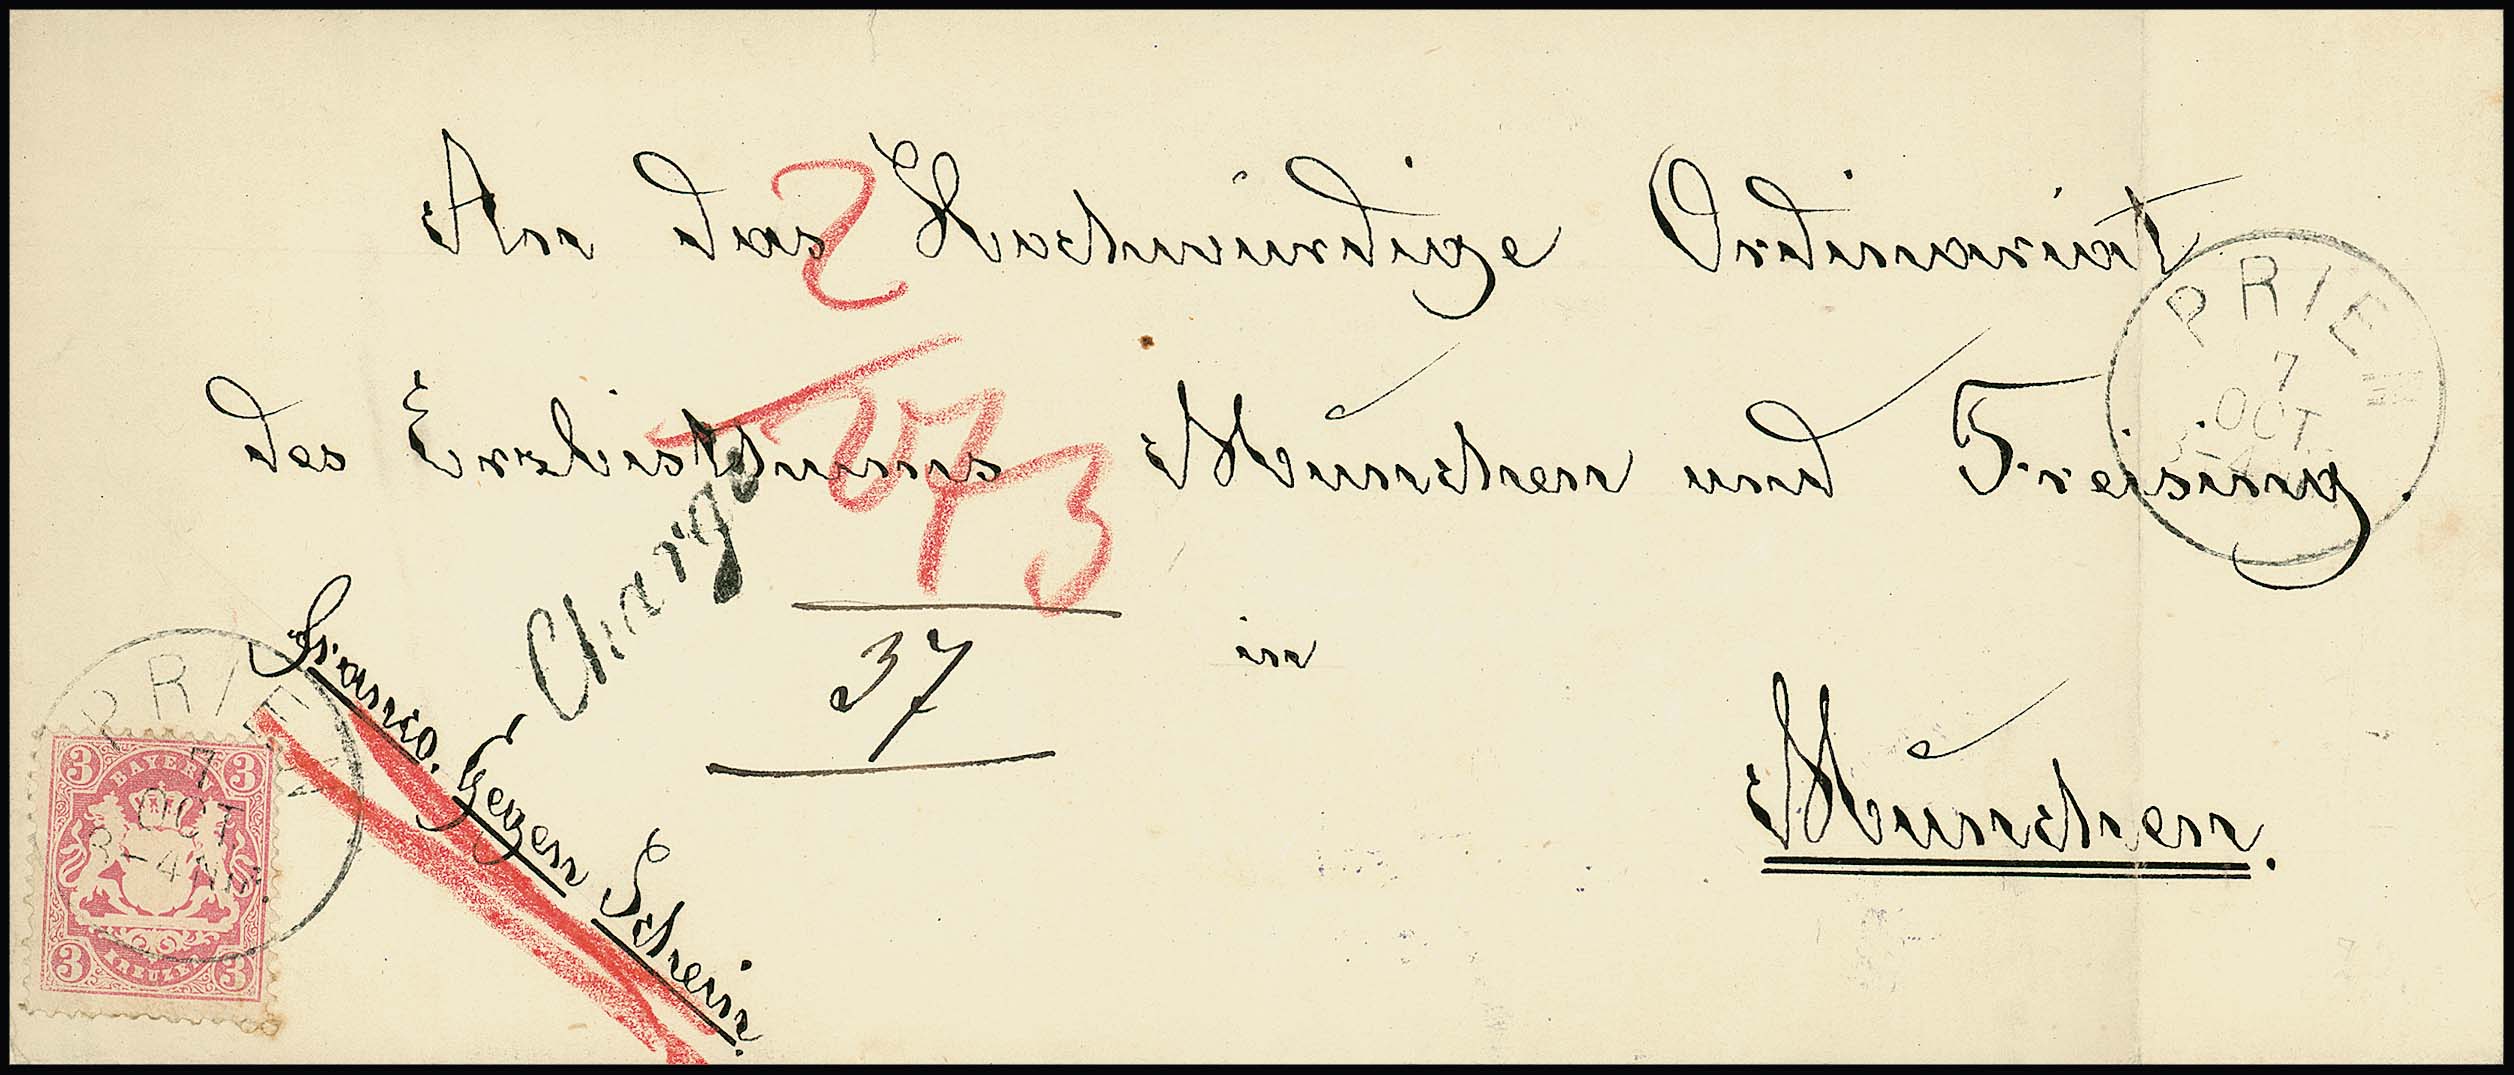 An das Hochwürdige Ordinariat
des Erzbisthums München und Freising.
in
München.
Franco. Gegen Schein.
Chargé
2
273
37
PRIEN
7
OCT
3-4 Nm.
PRIEN
7
OCT.
3-4
3 3
BAYERN
KREUZER
3 3